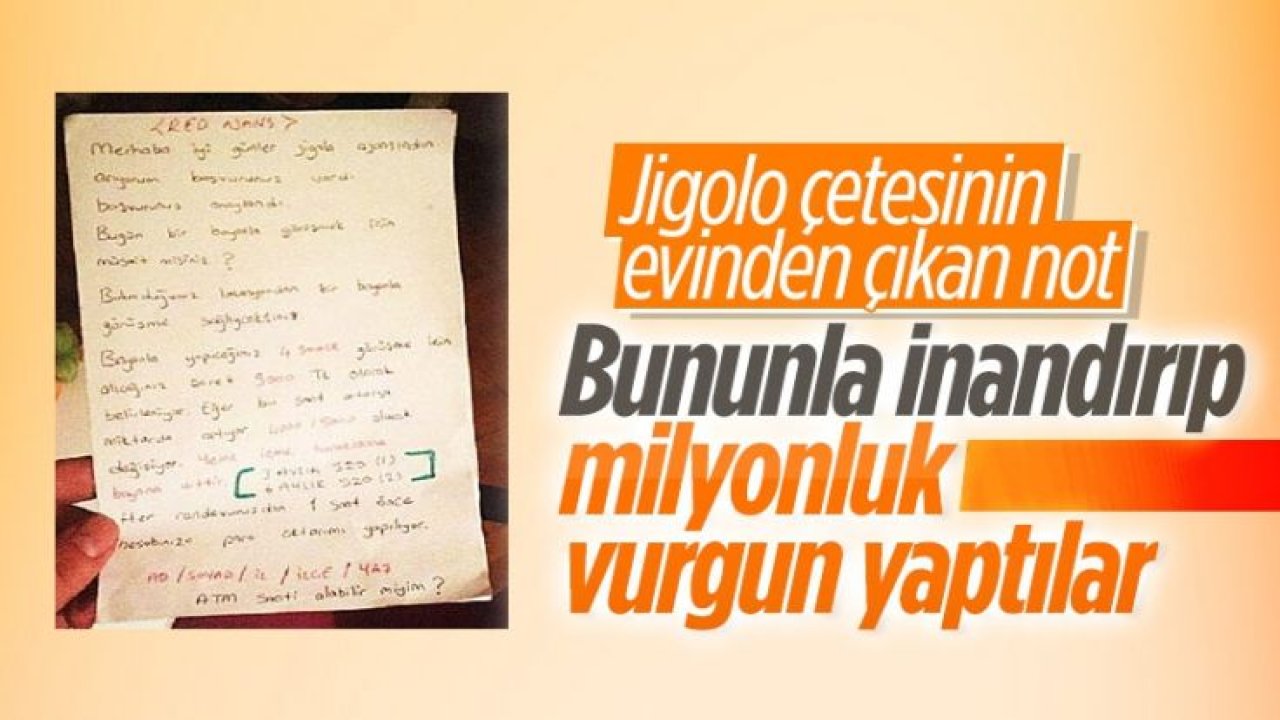 <RED AJANS>
Merhaba iyi günler jigolo ajansından
arıyorum başvurunuz vardı.
başvurunuz onaylandı.
Bugün bir bayanla görüşmek için
müsait misiniz?
Bulunduğunuz lokasyondan bir bayanla
görüşme sağlayacaksınız
Bayanla yapacağınız 4 saatlik görüşme için
alacağınız ücret 3000 TL olarak
belirleniyor. Eğer bu saat artarsa
miktarda artıyor 4000/5000 olarak
değişiyor. Yeme içme
bayana aittir
3 AYLIK 320 (1)
6 AYLIK 520 (2)
Her randevunuzdan 1 saat önce
hesabınıza para aktarımı yapılıyor.
AD/SOYAD/İL/İLÇE/YAŞ
ATM saati alabilir miyim?
Jigolo çetesinin
evinden çıkan not
Bununla inandırıp
milyonluk
vurgun yaptılar